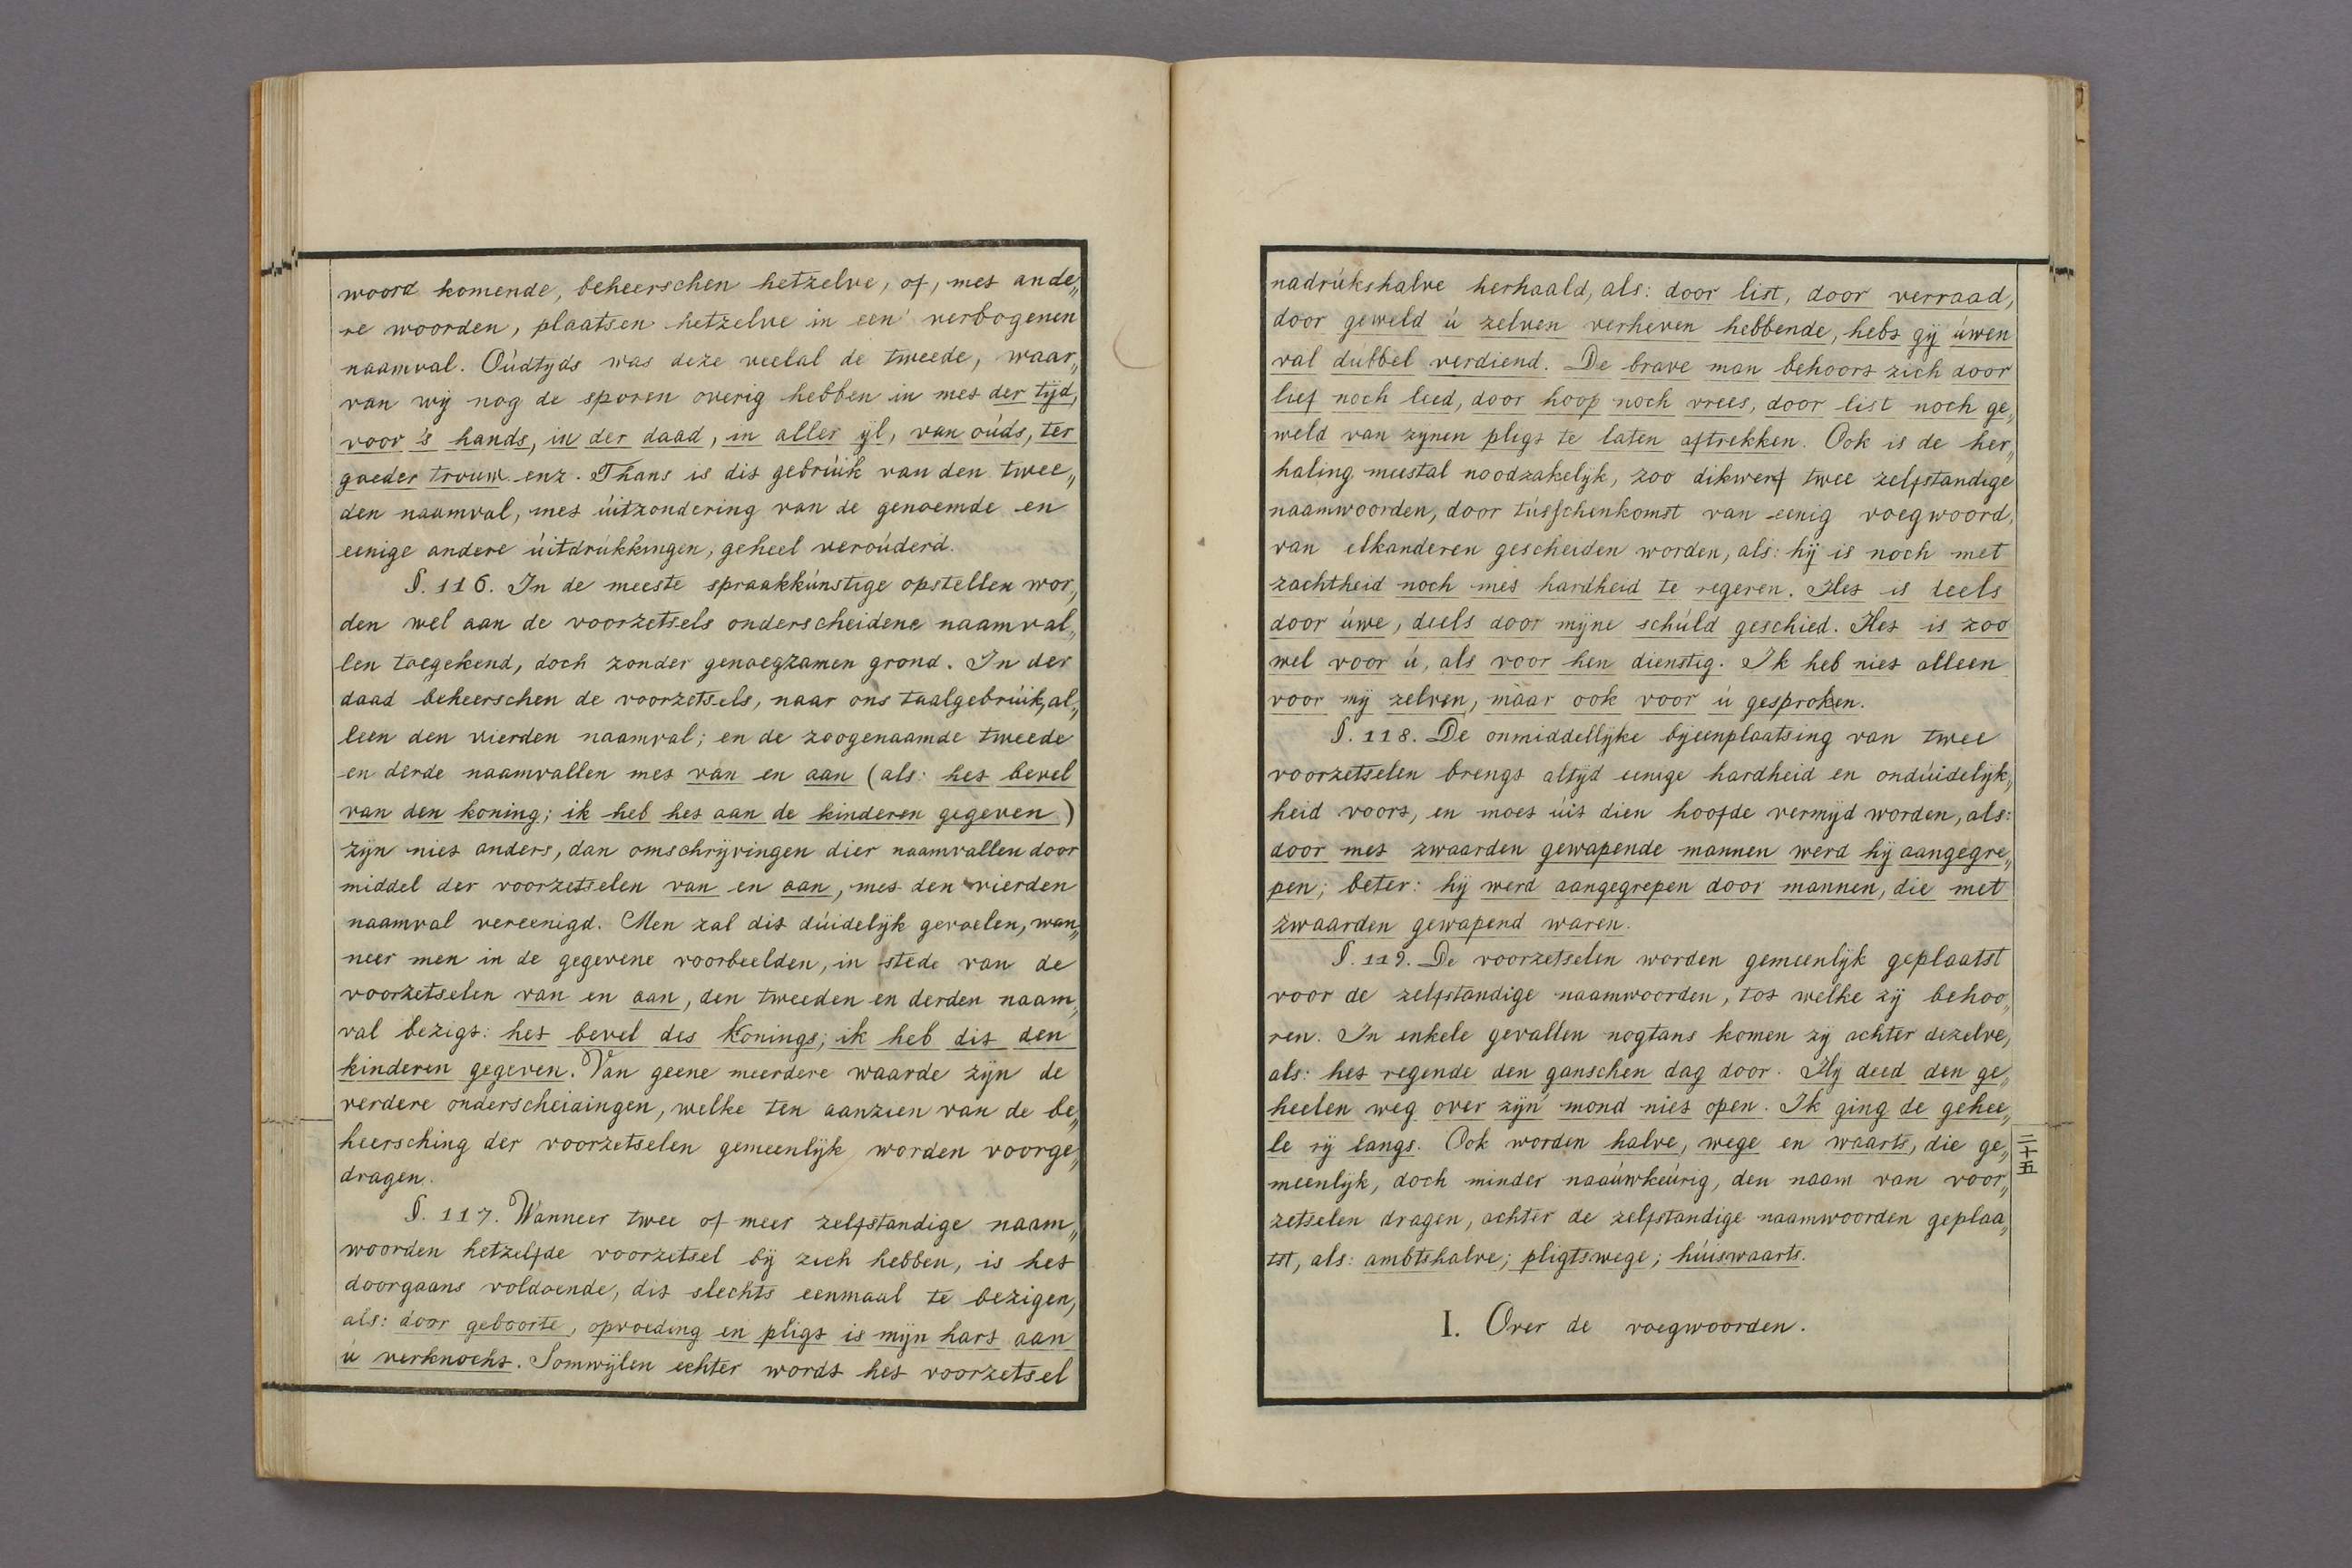 woord komende, beheerschen hetzelve, of, met ande„
re woorden, plaatsen hetzelve in een' verbogenen
naamval. Oúdtyds was deze veelal de tweede, waar„
van wij nog de sporen overig hebben in met der tijd,
voor 's hands, in der daad, in aller ijl, van oúds, ter
goeder trouw enz. Thans is dit gebrúik van den twee„
den naamval, met úitzondering van de genoemde en
eenige andere úitdrúkkingen, geheel veroúderd.
§. 116. In de meeste spraakkúnstige opstellen wor„
den wel aan de voorzetsels onderscheidene naamval„
len toegekend, doch zonder genoegzamen grond. In der
daad beheerschen de voorzetsels, naar ons taalgebrúik, al„
leen den vierden naamval; en de zoogenaamde tweede
en derde naamvallen met van en aan (als: het bevel
van den koning; ik heb het aan de kinderen gegeven)
zijn niet anders, dan omschrijvingen dier naamvallen door
middel der voorzetselen van en aan, met den vierden
naamval vereenigd. Men zal dit dúidelijk gevoelen, wan„
neer men in de gegevene voorbeelden, in stede van de
voorzetselen van en aan, den tweeden en derden naam„
val bezigt: het bevel des Konings; ik heb dit den
kinderen gegeven. Van geene meerdere waarde zijn de
verdere onderscheidingen, welke ten aanzien van de be„
heersching der voorzetselen gemeenlijk worden voorge„
dragen.
§. 117. Wanneer twee of meer zelfstandige naam„
woorden hetzelfde voorzetsel bij zich hebben, is het
doorgaans voldoende, dit slechts eenmaal te bezigen,
als: door geboorte, opvoeding en pligt is mijn hart aan
ú verknocht. Somwijlen echter wordt het voorzetsel
nadrúkshalve herhaald, als: door list, door verraad,
door geweld ú zelven verheven hebbende, hebt gij úwen
val dúbbel verdiend. De brave man behoort zich door
lief noch leed, door hoop noch vrees, door list noch ge„
weld van zijnen pligt te laten aftrekken. Ook is de her„
haling meestal noodzakelijk, zoo dikwerf twee zelfstandige
naamwoorden, door túsſchenkomst van eenig voegwoord,
van elkanderen gescheiden worden, als: hij is noch met
zachtheid noch met hardheid te regeren. Het is deels
door úwe, deels door mijne schúld geschied. Het is zoo
wel voor ú, als voor hen dienstig. Ik heb niet alleen
voor mij zelven, maar ook voor ú gesproken.
§. 118. De onmiddellijke bijeenplaatsing van twee
voorzetselen brengt altijd eenige hardheid en ondúidelijk„
heid voort, en moet úit dien hoofde vermijd worden, als:
door met zwaarden gewapende mannen werd hij aangegre„
pen; beter: hij werd aangegrepen door mannen, die met
zwaarden gewapend waren.
§. 119. De voorzetselen worden gemeenlijk geplaatst
voor de zelfstandige naamwoorden, tot welke zij behoo„
ren. In enkele gevallen nogtans komen zij achter dezelve,
als: het regende den ganschen dag door. Hij deed den ge„
heelen weg over zijn' mond niet open. Ik ging de gehee„
le rij langs. Ook worden halve, wege en waarts, die ge„
meenlijk, doch minder naaúwkeúrig, den naam van voor„
zetselen dragen, achter de zelfstandige naamwoorden geplaa„
tst, als: ambtshalve; pligtswege; húiswaarts.
I. Over de voegwoorden.
二十五